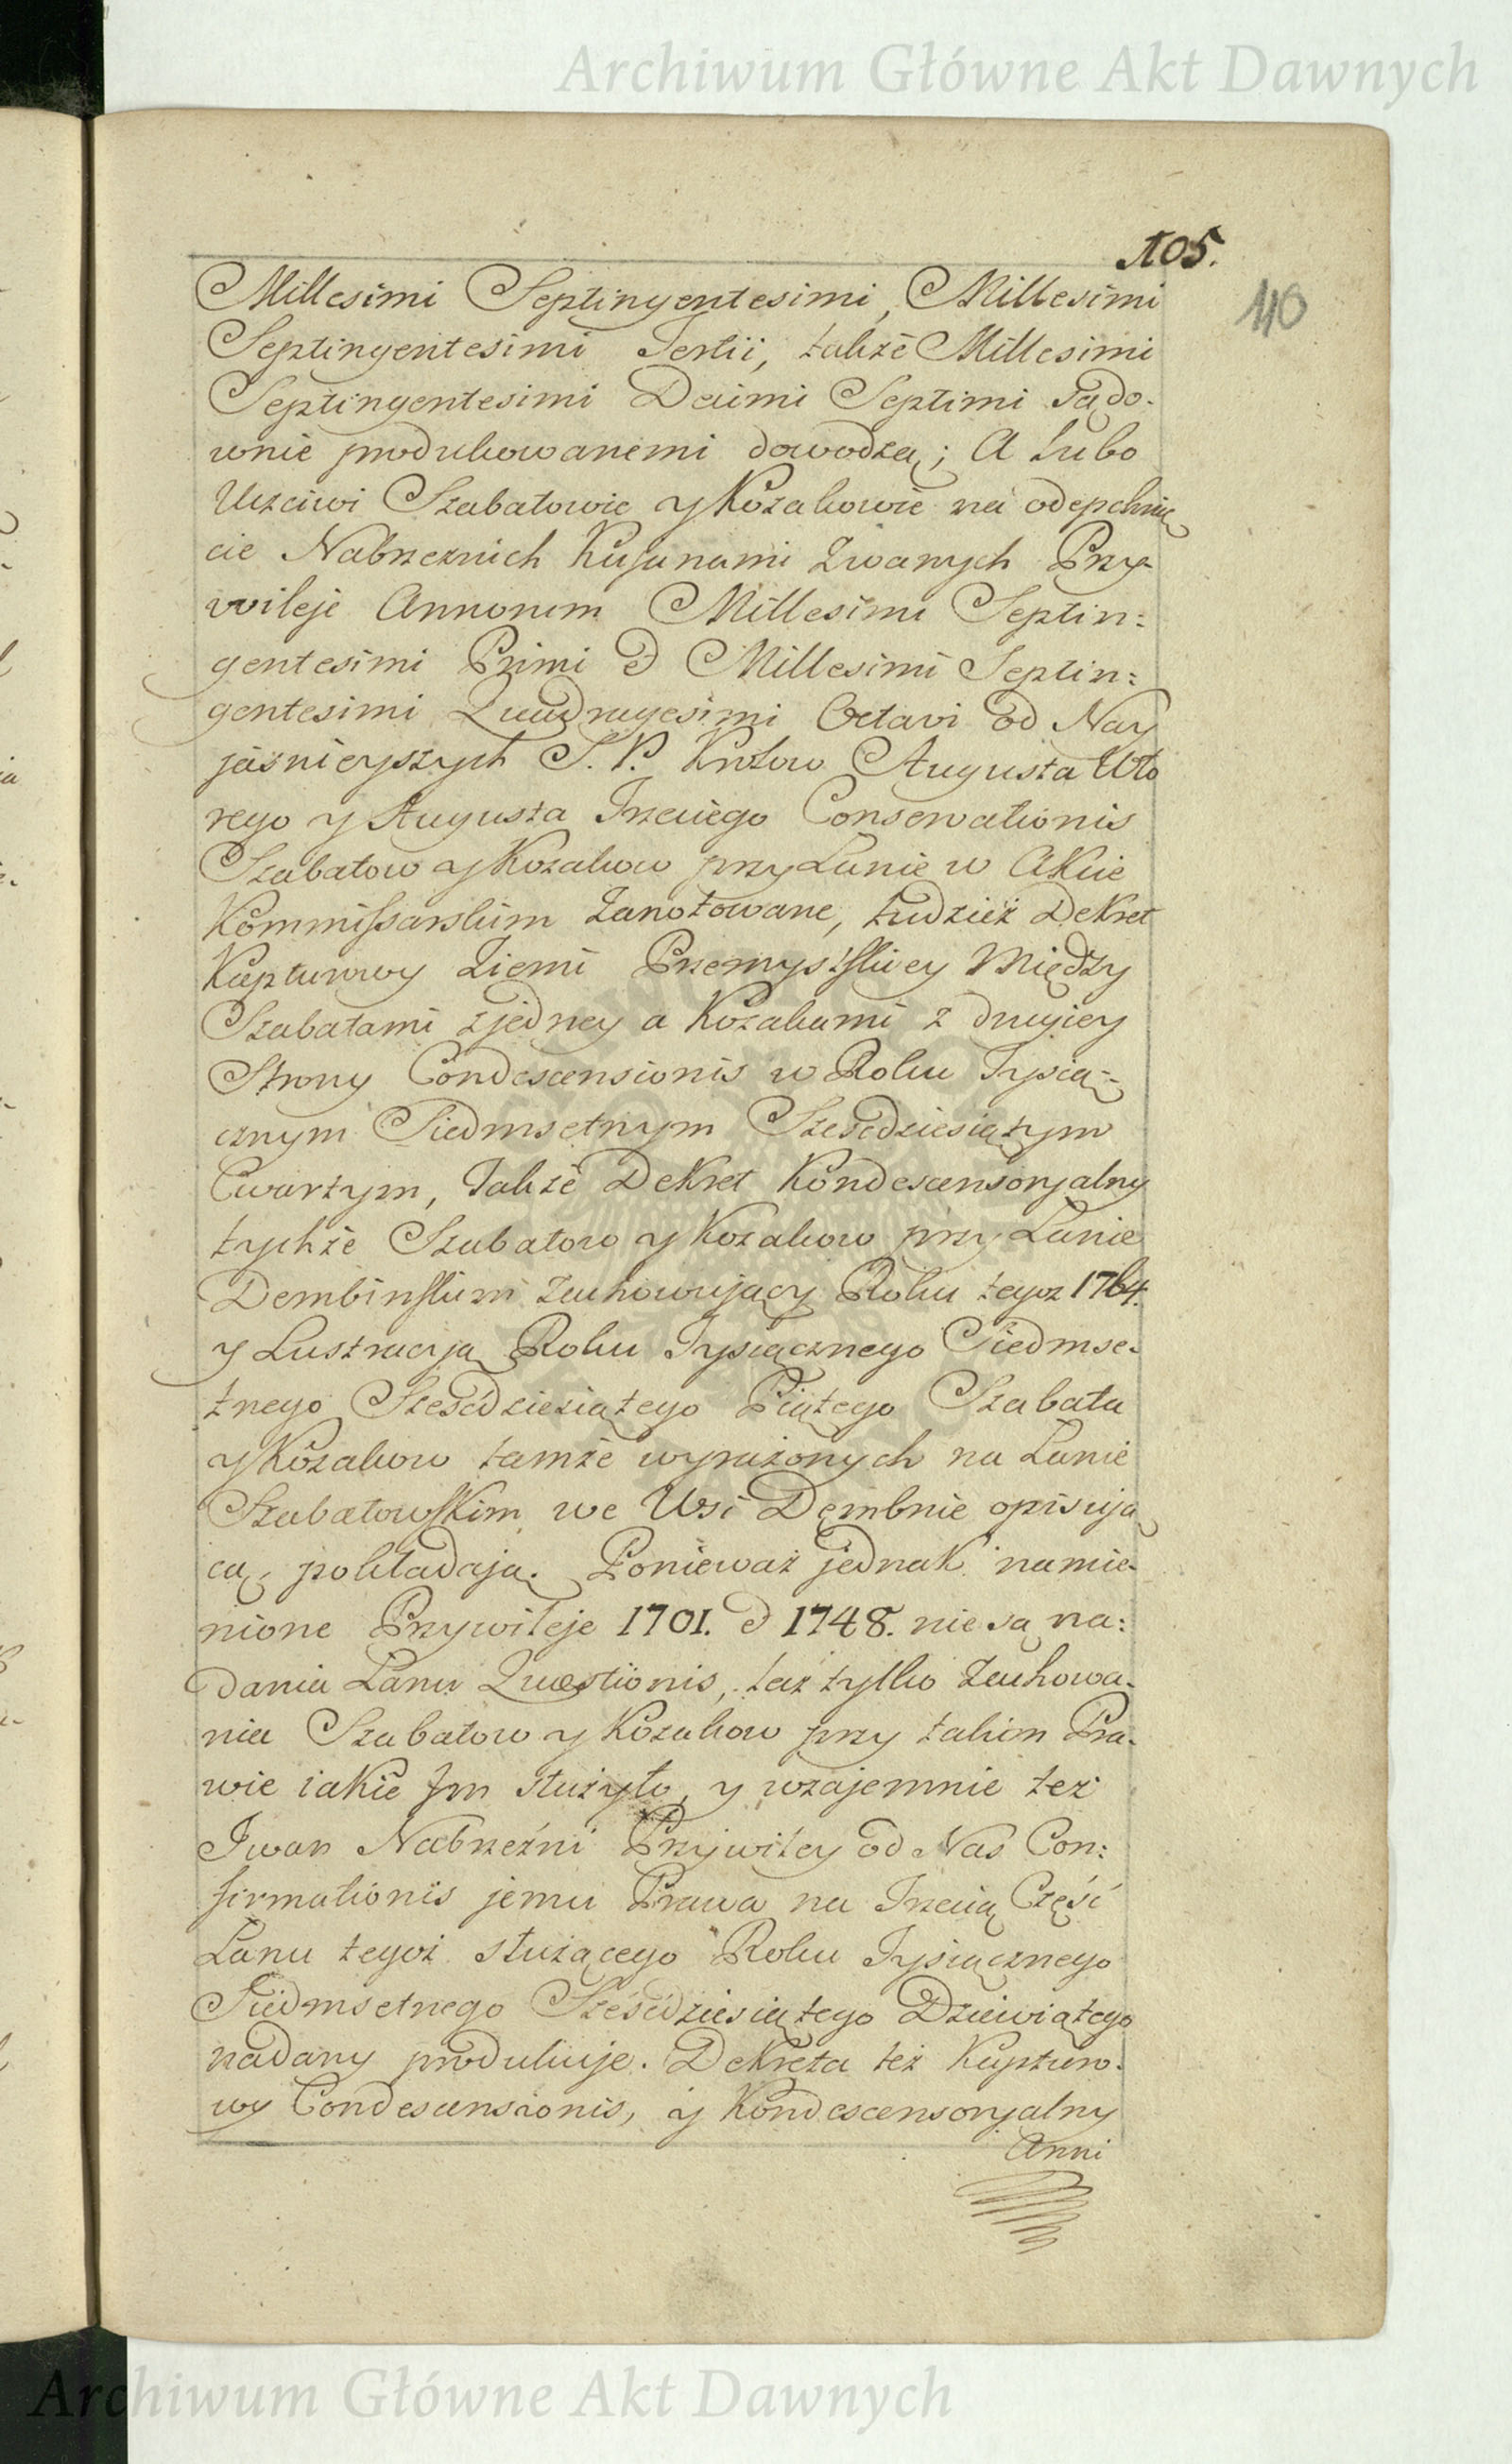 Archiwum Główne Akt Dawnych
105.
110
Millesimi Septingentesimi, Millesimi
Septingentesimi Tertii, także Millesimi
Septingentesimi Decimi Septimi sądo-
wnie produkowanemi dowodzą; A lubo
Uczciwi Szabatowie y Kozakowie na odepchnię
cie Nabrzeznich Kusznami zwanych Przy-
wileje Annorum Millesimi Septin:
gentesimi Primi & Millesimi Septin:
gentesimi Quadragesimi Octavi od Nay
jasnieyszych S. P. Krolow Augusta Wto
rego y Augusta Trzeciego Conservationis
Szabatow y Kozakow przy Łanie w Akcie
Kommissarskim zanotowane, tudzież Dekret
Kapturowy Ziemi Przemyslskiey między
Szabatami zjedney a Kozakami z drugiey
Strony Condescensionis w Roku Tysią-
cznym Siedmsetnym Sześćdziesiątym
Czwartym, Także Dekret Kondescensoryalny
tychże Szabatow y Kozakow przy Łanie
Dembinskim zachowujący Roku tegoż 1764.
y Lustracyą Roku Tysiącznego Siedmse-
tnego Sześćdziesiątego Piątego Szabata
y Kozakow tamże wyrażonych na Łanie
Szabatowskim we Wsi Dęmbnie opisują
cą, pokładają. Ponieważ jednak namie-
nione Przywileje 1701. & 1748. nie są na:
dania Łanu Quæstionis, lecz tylko zachowa-
nia Szabatow y Kozakow przy takim Pra-
wie iakie Im służyło, y wzajemnie też
Iwan Nabrzeźni Przywiley od Nas Con:
firmationis jemu Prawa na Trzecią Część
Łanu tegoż służącego Roku Tysiącznego
Siedmsetnego Sześćdziesiątego Dziewiątego
nadany produkuje. Dekreta też Kapturo-
wy Condescensionis, y Kondescensoryalny
Anni
Archiwum Główne Akt Dawnych